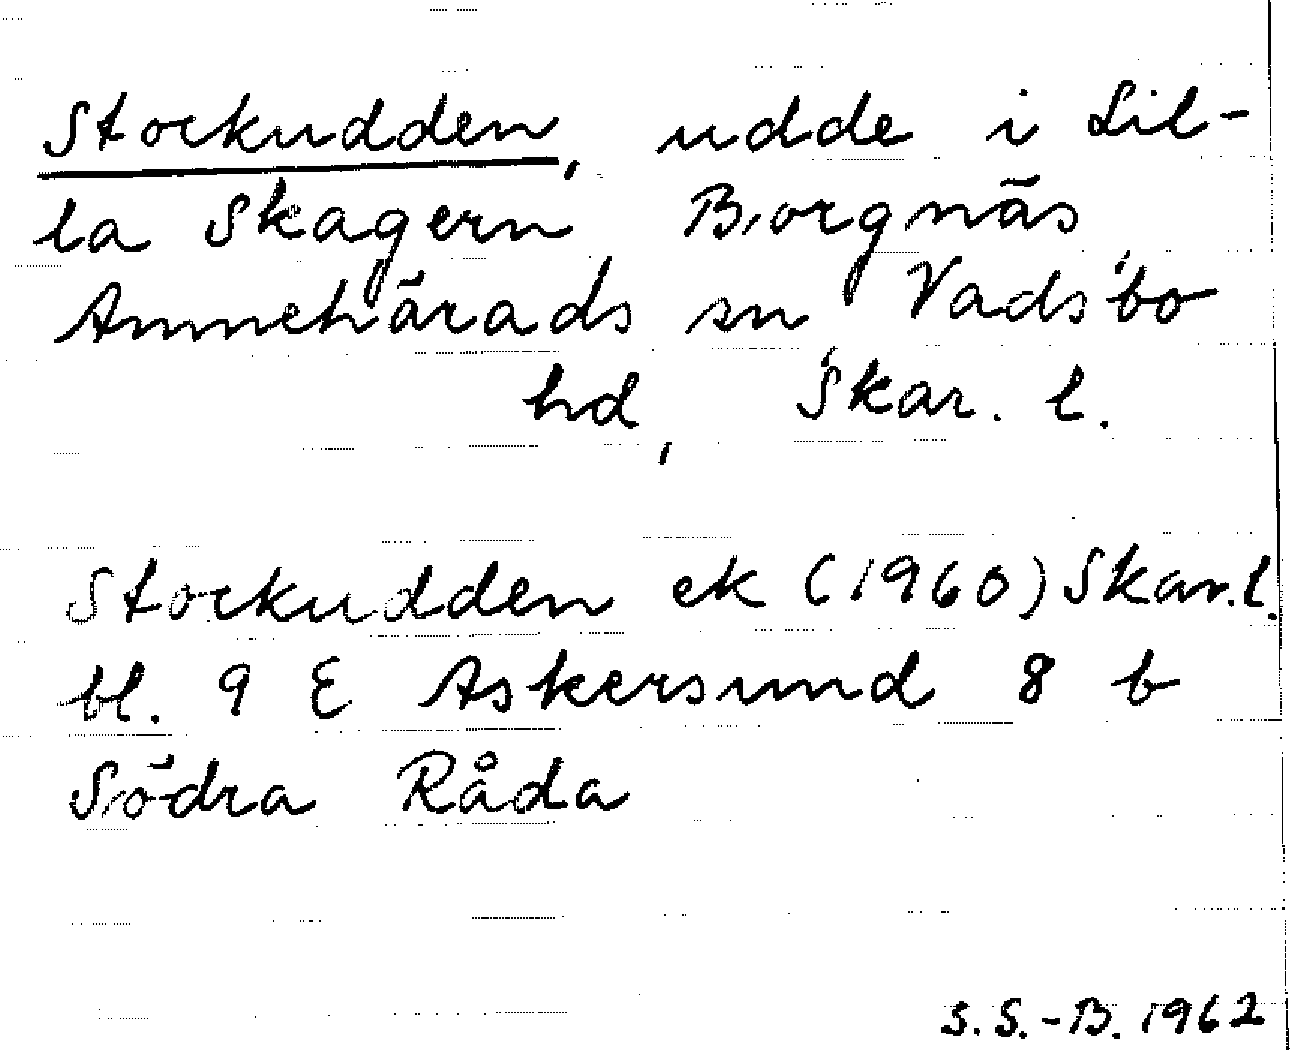 Stockudden, udde i Lil-
la Skagern, Borgnäs,
Amnehärads sn, Vadsbo
hd, Skar. l.
Stockudden ek (1960) Skar. l.
bl. 9 E Askersund 8 b
Södra Råda
S. S.-B. 1962